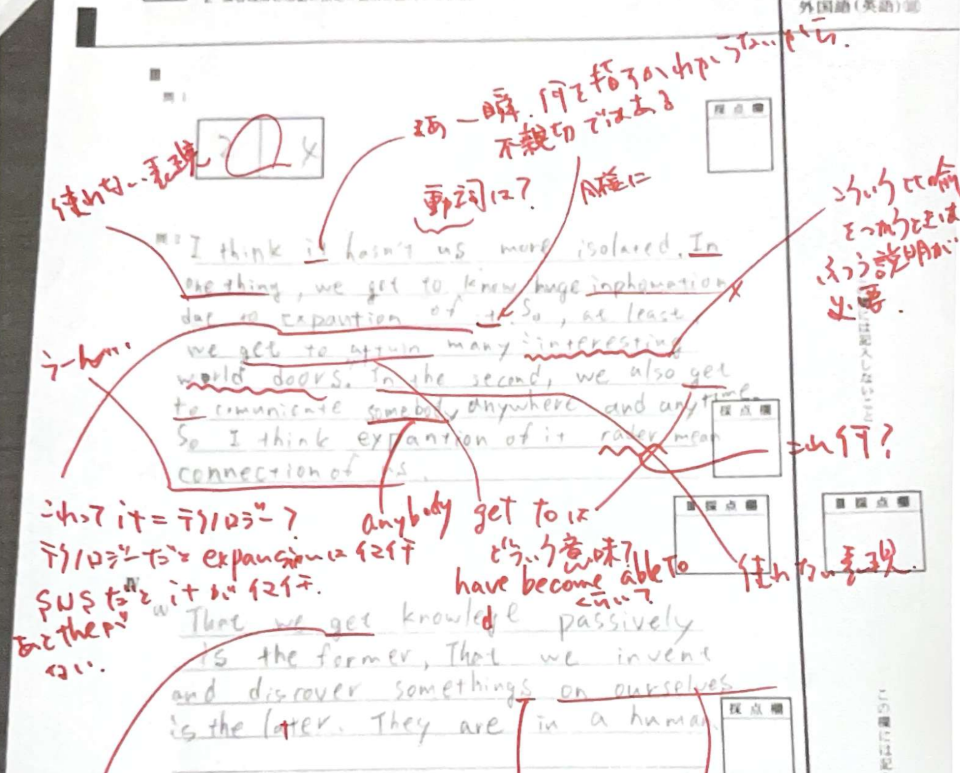 外国語(英語)
問1
採点欄
まあ一瞬、何を指すかわからないから、
不親切ではある
使わない表現
動詞は?
同様に
こういう比喩
をつかうときは
ふつう説明が
必要.
問2
I think it hasn't us more isolared. In
one thing, we get to know huge inphomation
due to expantion of it. So, at least
we get to attain many interesting
world doors. In the second, we also get
to comunicate somebody anywhere and anytime.
So I think expantion of it rader mean
connection of us.
うーん…
採点欄
これ何?
これって it = テクノロジー?
テクノロジーだと expansionは
SNSだと itが
あと theが
ない.
anybody
get to は
どういう意味?
have become able to
くらい?
使わない表現.
採点欄
採点欄
には記入しないこと
That we get knowledge passively
d
is the former, That we invent
and discover somethings on ourselves
is the later. They are in a human
t
採点欄
この欄には記